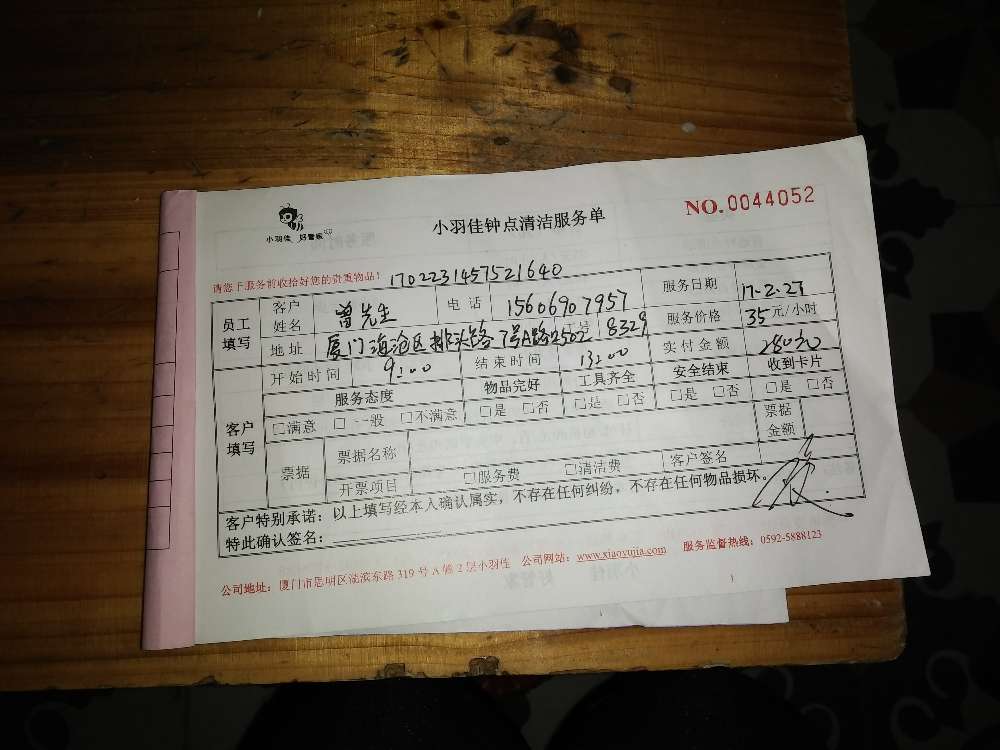 小羽佳 好管家
小羽佳钟点清洁服务单
NO.0044052
请您于服务前收拾好您的贵重物品！ 1702231457521640
员工填写 客户姓名 曾先生 电话 15606907957 服务日期 17.2.27
地址 厦门海沧区排头路7号A路2502 工号 8329 服务价格 35元/小时
客户填写 开始时间 9:00 结束时间 13:00 实付金额
服务态度 物品完好 工具齐全 安全结束 收到卡片
□满意 □一般 □不满意 □是 □否 □是 □否 □是 □否 □是 □否
票据 票据名称 票据金额
开票项目 □服务费 □清洁费 客户签名
客户特别承诺：以上填写经本人确认属实，不存在任何纠纷，不存在任何物品损坏。
特此确认签名：
公司地址：厦门市思明区湖滨东路 319 号 A 幢 2 层小羽佳 公司网站：www.xiaoyujia.com 服务监督热线：0592-5888123